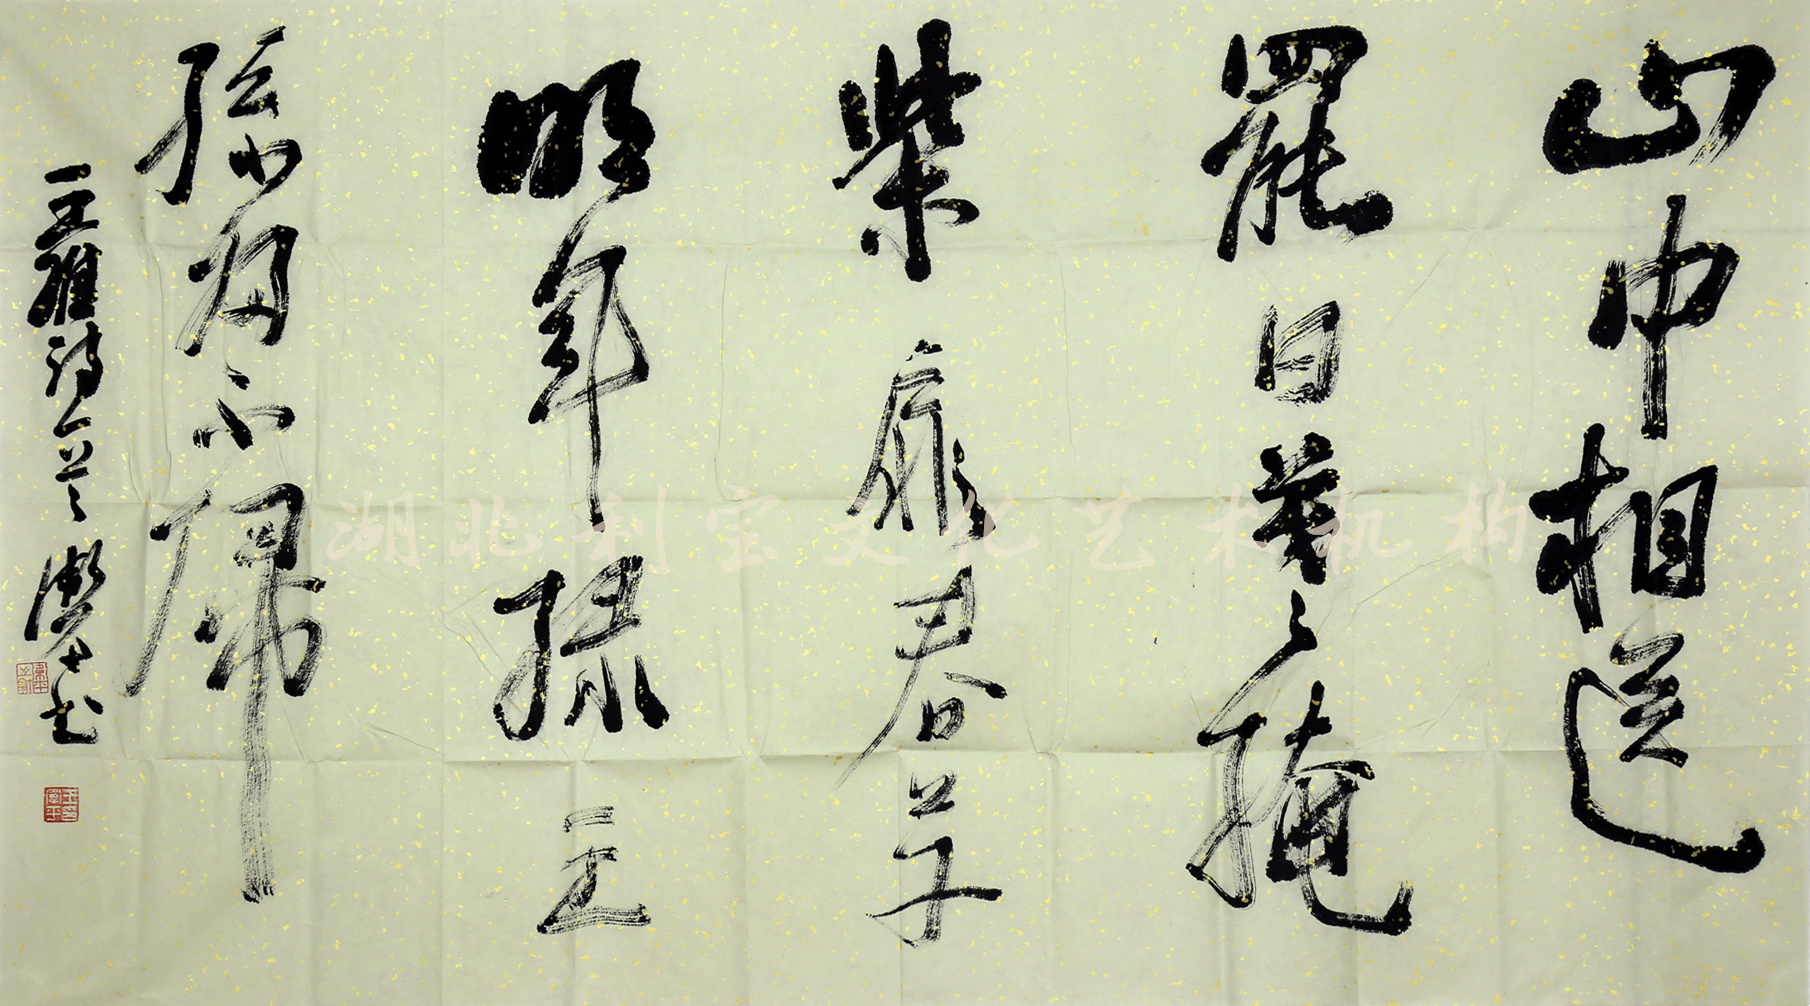 山中相送
罷日暮掩
柴扉春草
明年綠王
孫歸不歸
王維詩一首 書
湖北利宝文化艺术机构